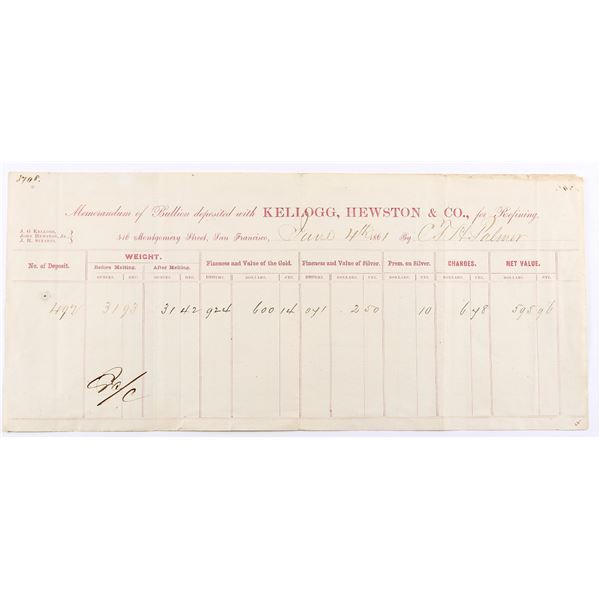 3748.
Memorandum of Bullion deposited with KELLOGG, HEWSTON & CO., for Refining.
J. G. KELLOGG,
JOHN HEWSTON, JR.
J. H. STEARNS,
416 Montgomery Street, San Francisco, June 4th 1861 By C. T. H. Palmer
No. of Deposit. WEIGHT. Fineness and Value of the Gold. Fineness and Value of Silver. Prem. on Silver. CHARGES. NET VALUE.
Before Melting. After Melting.
OUNCES. DEC. OUNCES. DEC. DOLLARS. CTS. DOLLARS. CTS. DOLLARS. CTS. DOLLARS. CTS. DOLLARS. CTS.
497 31 93 31 42 924 600 14 071 2 50 10 6 78 595 96